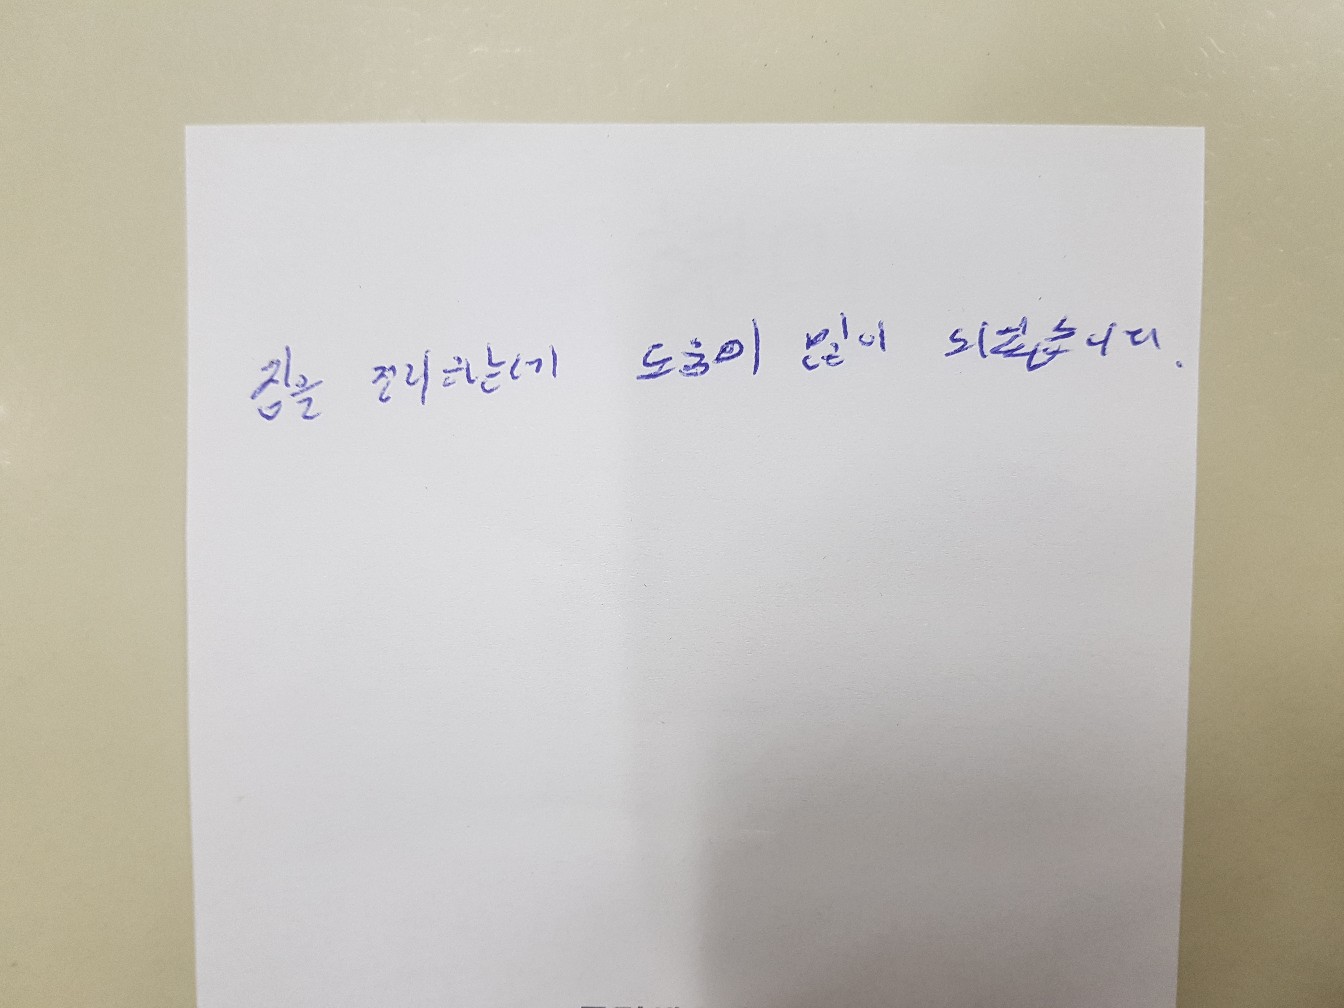 집을 정리하는데 도움이 많이 되었습니다.